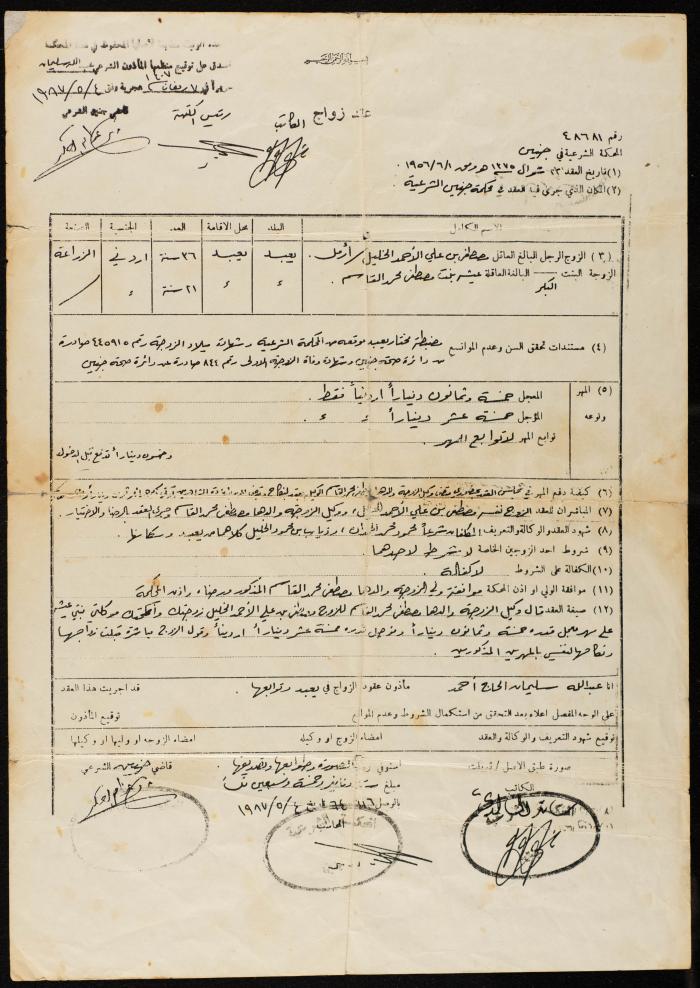 بسم الله الرحمن الرحيم
عقد زواج
الكاتب
رئيس الكتبة
قاضي جنين الشرعي
١٩٨٧/٥/٤
رقم ٤٨٦٨١
المحكمة الشرعية في جنين
(١) تاريخ العقد ٢٣ شوال ١٣٧٥ هـ وفق ١٩٥٦/٦/١
(٢) المكان الذي جرى فيه العقد في محكمة جنين الشرعية
الاسم الكامل البلد محل الاقامة العمر الجنسية الصنعة
(٣) الزوج الرجل البالغ العاقل مصطفى بن علي الأحمد الخليل / أرمل. يعبد يعبد ٣٦ سنة اردني الزراعة
الزوجة البنت البكر البالغة العاقلة عيشه بنت مصطفى محمد القاسم. ٢١ سنة
(٤) مستندات تحقق السن وعدم الموانع مضبطة مختار يعبد موقعه من المحكمة الشرعية وشهادة ميلاد الزوجة رقم ٤٤٥٩١٥ صادرة
من دائرة صحة جنين وشهادة وفاة الزوجة الاولى رقم ٨٤٤ صادرة عن دائرة صحة جنين
(٥) المهر ونوعه
المعجل خمسة وثمانون ديناراً اردنياً فقط.
المؤجل خمسة عشر ديناراً
توابع المهر لا توابع للمهر.
وخمسون ديناراً تدفع قبل الدخول
(٦) كيفية دفع المهر في مجلس العقد
(٧) المباشران للعقد الزوج نفسه مصطفى بن علي الأحمد الخليل، ووكيل الزوجة والدها مصطفى محمد القاسم جرى العقد بالرضا والاختيار.
(٨) شهود العقد والوكالة والتعريف المكلفان شرعاً محمود محمد، كلاهما من يعبد وسكانها.
(٩) شروط احد الزوجين الخاصة لا شرط لاحدهما.
(١٠) الكفالة على الشروط لا كفالة.
(١١) موافقة الولي او اذن المحكمة موافقة ولي الزوجة والدها مصطفى محمد القاسم المذكور ورضاه واذن المحكمة
(١٢) صيغة العقد قال وكيل الزوجة والدها مصطفى محمد القاسم للزوج مصطفى بن علي الأحمد الخليل زوجتك وأنكحتك موكلتي بنتي عيشه
على مهر معجل قدره خمسة وثمانون ديناراً ومؤجل قدره خمسة عشر ديناراً اردنياً وقول الزوج مباشرة قبلت زواجها
ونكاحها لنفسي بالمهرين المذكورين.
انا عبدالله سليمان الحاج أحمد مأذون عقود الزواج في يعبد وتوابعها قد اجريت هذا العقد
على الوجه المفصل اعلاه بعد التحقق من استكمال الشروط وعدم الموانع توقيع المأذون
توقيع شهود التعريف والوكالة والعقد امضاء الزوج او وكيله امضاء الزوجه او وليها او وكيلها
صورة طبق الاصل
قاضي جنين الشرعي
الكاتب
١٩٨٧/٥/٤
المحاسب